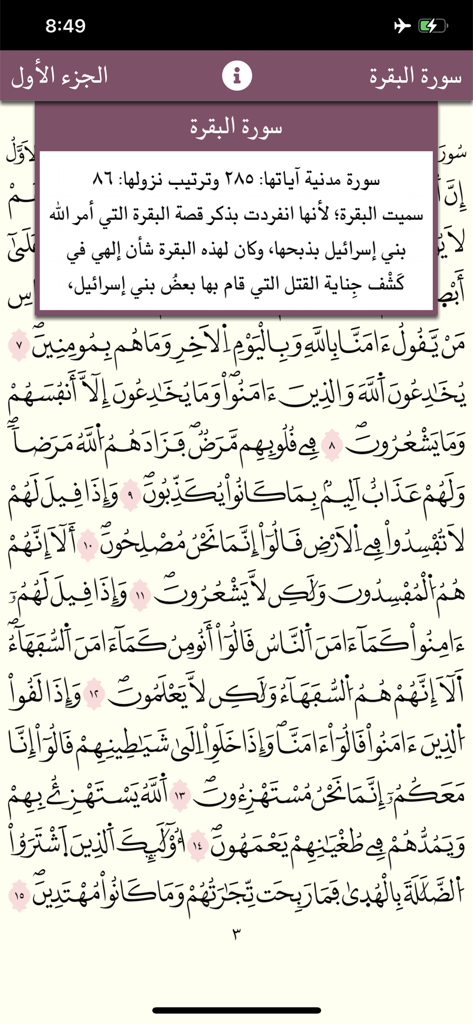 8:49
سورة البقرة
الجزء الأول
سورة البقرة
سورة مدنية آياتها: ٢٨٥ وترتيب نزولها: ٨٦
سميت البقرة؛ لأنها انفردت بذكر قصة البقرة التي أمر الله
بني إسرائيل بذبحها، وكان لهذه البقرة شأن إلهي في
كَشْف جِناية القتل التي قام بها بعضُ بني إسرائيل،
مَنْ يَّقُولُ ءَامَنَّا بِاللَّهِ وَبِالْيَوْمِ اِلَاخِرِ وَمَا هُم بِمُومِنِينَ ٧
يُخَٰدِعُونَ اَللَّهَ وَالذِينَ ءَامَنُواْ وَمَا يُخَٰدِعُونَ إِلَّآ أَنفُسَهُمْ
وَمَا يَشْعُرُونَ ٨ فِے قُلُوبِهِم مَّرَضٌ فَزَادَهُمُ اُللَّهُ مَرَضاً
وَلَهُمْ عَذَابٌ اَلِيمٌ بِمَا كَانُواْ يُكَذِّبُونَ ٩ وَإِذَا قِيلَ لَهُمْ
لَا تُفْسِدُواْ فِے اِلَارْضِ قَالُوٓاْ إِنَّمَا نَحْنُ مُصْلِحُونَ ١٠ أَلَآ إِنَّهُمْ
هُمُ اُلْمُفْسِدُونَ وَلَٰكِن لَّا يَشْعُرُونَ ١١ وَإِذَا قِيلَ لَهُمُۥٓ
ءَامِنُواْ كَمَآ ءَامَنَ اَلنَّاسُ قَالُوٓاْ أَنُومِنُ كَمَآ ءَامَنَ اَلسُّفَهَآءُ
أَلَآ إِنَّهُمْ هُمُ اُلسُّفَهَآءُ وَلَٰكِن لَّا يَعْلَمُونَ ١٢ وَإِذَا لَقُواْ
اُلذِينَ ءَامَنُواْ قَالُوٓاْ ءَامَنَّا وَإِذَا خَلَوِاْ اِلَىٰ شَيَٰطِينِهِمْ قَالُوٓاْ إِنَّا
مَعَكُمُۥٓ إِنَّمَا نَحْنُ مُسْتَهْزِءُونَ ١٣ اَللَّهُ يَسْتَهْزِئُ بِهِمْ
وَيَمُدُّهُمْ فِے طُغْيَٰنِهِمْ يَعْمَهُونَ ١٤ أُوْلَٰٓئِكَ اَلذِينَ اَشْتَرَوُاْ
اُلضَّلَٰلَةَ بِالْهُدىٰ فَمَا رَبِحَت تِّجَٰرَتُهُمْ وَمَا كَانُواْ مُهْتَدِينَ ١٥
٣